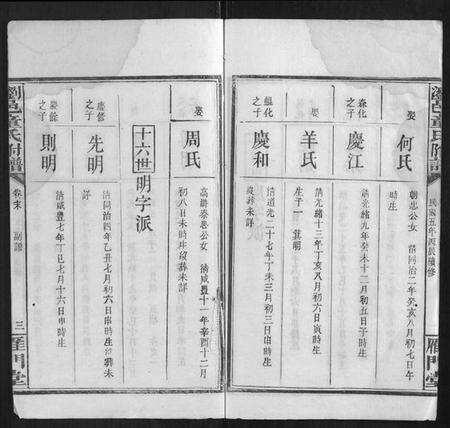 瀏邑童氏附譜
民國五年丙辰續修
雁門堂
娶
何氏
朝忠公女 清同治二年癸亥八月初七日午
時生
森化
之子
慶江
清光緒九年癸未十二月初五日子時生
娶
羊氏
清光緒十三年丁亥八月初六日寅時生
生子一 箕明
蘊化
之子
慶和
清道光二十七年丁未三月初三日申時生
歿葬未詳
娶
周氏
高 公女 清咸豐十一年辛酉十二月
初八日未時生歿葬未詳
十六世
明字派
慶修
之子
先明
清同治四年乙丑七月初六日申時生歿葬未
詳
慶餘
之子
則明
清咸豐七年丁巳七月十六日申時生
瀏邑童氏附譜
卷末
副譜
三
雁門堂